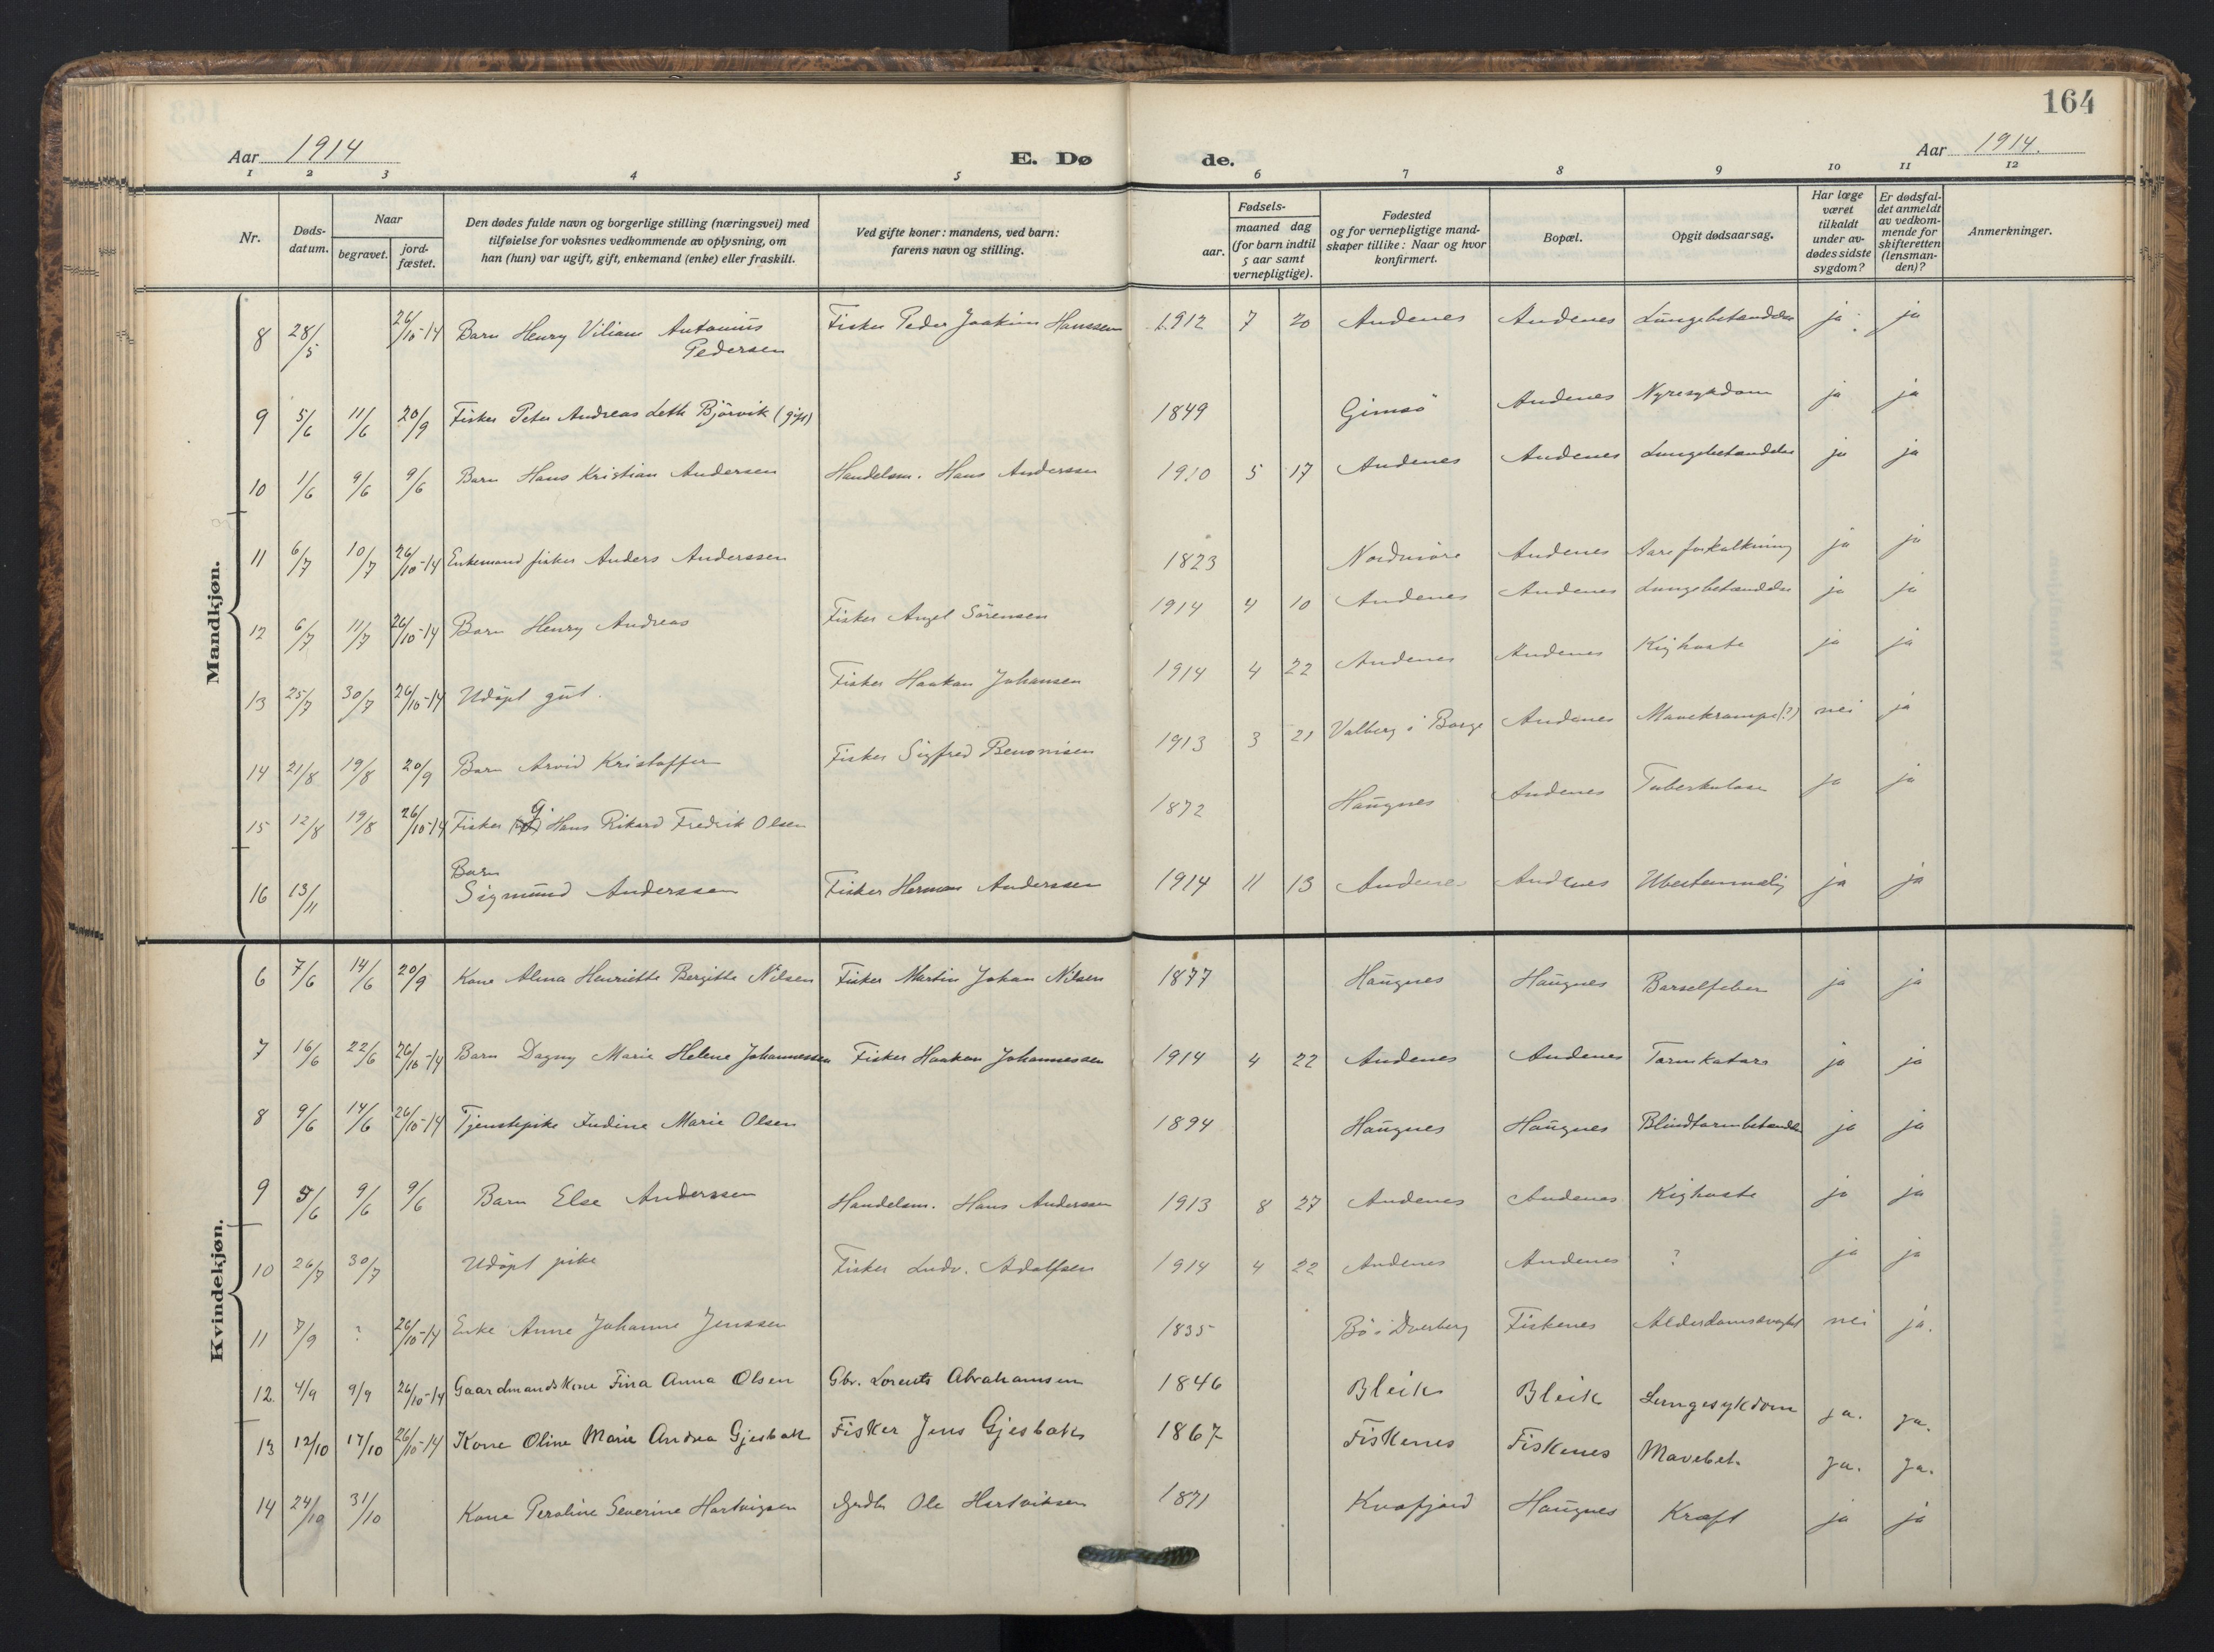 164
Aar 1914
E. Dø
de.
Aar 1914.
1 2 3 4 5 6 7 8 9 10 11 12
Nr.
Døds-
datum.
Naar
begravet.
jord-
fæstet.
Den dødes fulde navn og borgerlige stilling (næringsvei) med
tilføielse for voksnes vedkommende av oplysning, om
han (hun) var ugift, gift, enkemand (enke) eller fraskilt.
Ved gifte koner: mandens, ved barn:
farens navn og stilling.
Fødsels-
aar.
maaned dag
(for barn indtil
5 aar samt
vernepligtige).
Fødested
og for vernepligtige mand-
skaper tillike: Naar og hvor
konfirmert.
Bopæl.
Opgit dødsaarsag.
Har læge
været
tilkaldt
under av-
dødes sidste
sygdom?
Er dødsfal-
det anmeldt
av vedkom-
mende for
skifteretten
(lensman-
den)?
Anmerkninger.
Mandkjøn.
8 28/5 26/10-14 Barn Henry Viliam Antonius Fisker Peder Joakim Hanssen 1912 7 20 Andenes Andenes Lungebetændelse ja ja
Pedersen
9 5/6 11/6 20/9 Fisker Peter Andreas Leth Bjørvik (gift) 1849 Gimsö Andenes Nyresykdom ja ja
10 1/6 9/6 9/6 Barn Hans Kristian Andersen Handelsm. Hans Anderssen 1910 5 17 Andenes Andenes Lungebetændelse ja ja
11 6/7 10/7 26/10-14 Enkemand fisker Anders Anderssen 1823 Nordmöre Andenes Aareforkalkning ja ja
12 6/7 11/7 26/10-14 Barn Henry Andreas Fisker Angel Sörensen 1914 4 10 Andenes Andenes Lungebetændelse ja ja
13 25/7 30/7 26/10-14 Udöpt gut. Fisker Haakon Johansen 1914 4 22 Andenes Andenes Kighoste ja ja
14 21/8 19/8 20/9 Barn Arvid Kristoffer Fisker Sigfred Benonisen 1913 3 21 Valberg i Borge Andenes Mavekrampe(?) nei ja
15 12/8 19/8 26/10-14 Fisker g Hans Rikard Fredrik Olsen 1872 Haugnes Andenes Tuberkulose ja ja
16 13/11 Barn
Sigmund Anderssen Fisker Herman Anderssen 1914 11 13 Andenes Andenes Ubestemmelig ja ja
Kvindekjøn.
6 7/6 14/6 20/9 Kone Alma Henriette Bergitte Nilsen Fisker Martin Johan Nilsen 1877 Haugnes Haugnes Barselfeber ja ja
7 16/6 22/6 26/10-14 Barn Dagny Marie Helene Johannessen Fisker Haakon Johannessen 1914 4 22 Andenes Andenes Tarmkatarr ja ja
8 9/6 14/6 26/10-14 Tjenstepike Indine Marie Olsen 1894 Haugnes Haugnes Blindtarmbetændelse ja ja
9 5/6 9/6 9/6 Barn Else Anderssen Handelsm. Hans Anderssen 1913 8 27 Andenes Andenes Kighoste ja ja
10 26/7 30/7 Udöpt pike Fisker Ludv. Adolfsen 1914 4 22 Andenes Andenes ? ja ja
11 7/9 ? 26/10-14 Enke Anne Johanne Jenssen 1835 Bö i Dverberg Fiskenes Alderdomssvaghet nei ja.
12 4/9 9/9 26/10-14 Gaardmandskone Fina Anna Olsen Gbr. Lorents Abrahamsen 1846 Bleik Bleik Lungesykdom ja. ja.
13 12/10 17/10 26/10-14 Kone Oline Marie Andrea Gjesbakk Fisker Jens Gjesbakk 1867 Fiskenes Fiskenes Mavebet. ja. ja.
14 24/10 31/10 Kone Peroline Severine Hartvigsen Grdb. Ole Hartviksen 1871 Kvæfjord Haugnes Kræft ja ja